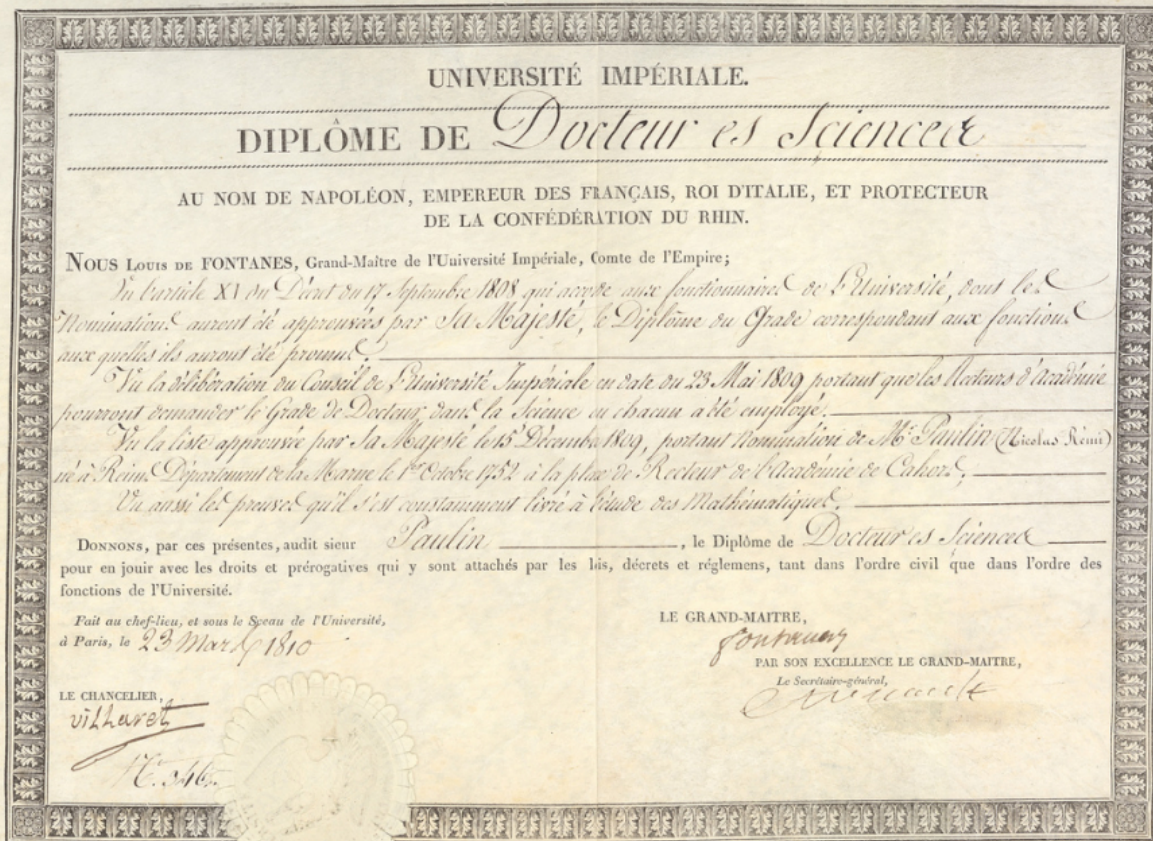 UNIVERSITÉ IMPÉRIALE.
DIPLÔME DE Docteur es Sciences
AU NOM DE NAPOLÉON, EMPEREUR DES FRANÇAIS, ROI D'ITALIE, ET PROTECTEUR
DE LA CONFÉDÉRATION DU RHIN.
NOUS LOUIS DE FONTANES, Grand-Maître de l'Université Impériale, Comte de l'Empire;
Vu l'article XV du Décret du 17 Septembre 1808 qui accorde aux fonctionnaires de l'Université, dont les
Nominations auront été approuvées par Sa Majesté, le Diplôme du Grade correspondant aux fonctions
aux quelles ils auront été promus.
Vu la délibération du Conseil de l'Université Impériale en date du 23 Mai 1809 portant que les Recteurs d'Académie
pourront demander le Grade de Docteur, dans la Science ou chacun a été employé.
Vu la liste approuvée par Sa Majesté le 15 Décembre 1809, portant Nomination de Mr. Paulin (Nicolas Rémi)
né à Reims Département de la Marne le 1er Octobre 1752 à la place de Recteur de l'Académie de Cahors;
Vu aussi les preuves qu'il s'est constamment livré à l'étude des Mathématiques.
DONNONS, par ces présentes, audit sieur Paulin, le Diplôme de Docteur es Sciences
pour en jouir avec les droits et prérogatives qui y sont attachés par les lois, décrets et réglemens, tant dans l'ordre civil que dans l'ordre des
fonctions de l'Université.
Fait au chef-lieu, et sous le Sceau de l'Université,
à Paris, le 23 Mars 1810
LE CHANCELIER,
Villaret
LE GRAND-MAITRE,
Fontanes
PAR SON EXCELLENCE LE GRAND-MAITRE,
Le Secrétaire-général,